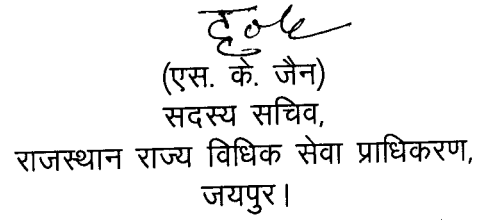 (एस. के. जैन)
सदस्य सचिव,
राजस्थान राज्य विधिक सेवा प्राधिकरण,
जयपुर।